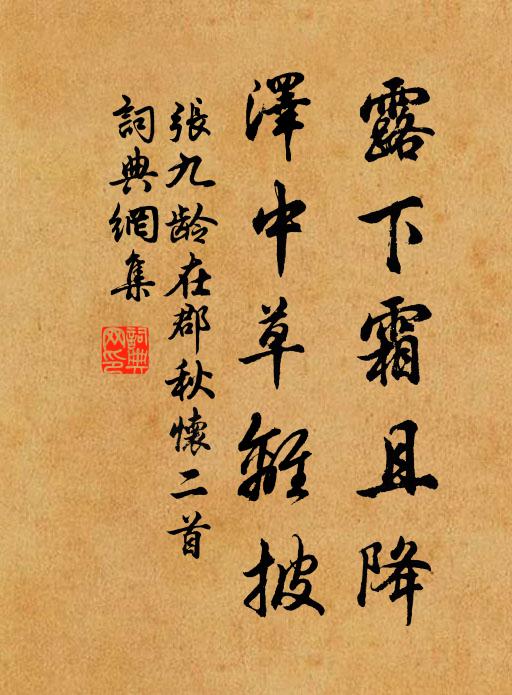 露下霜且降
澤中草離披
張九龄在郡秋懷二首
詞典網集
詞典網印